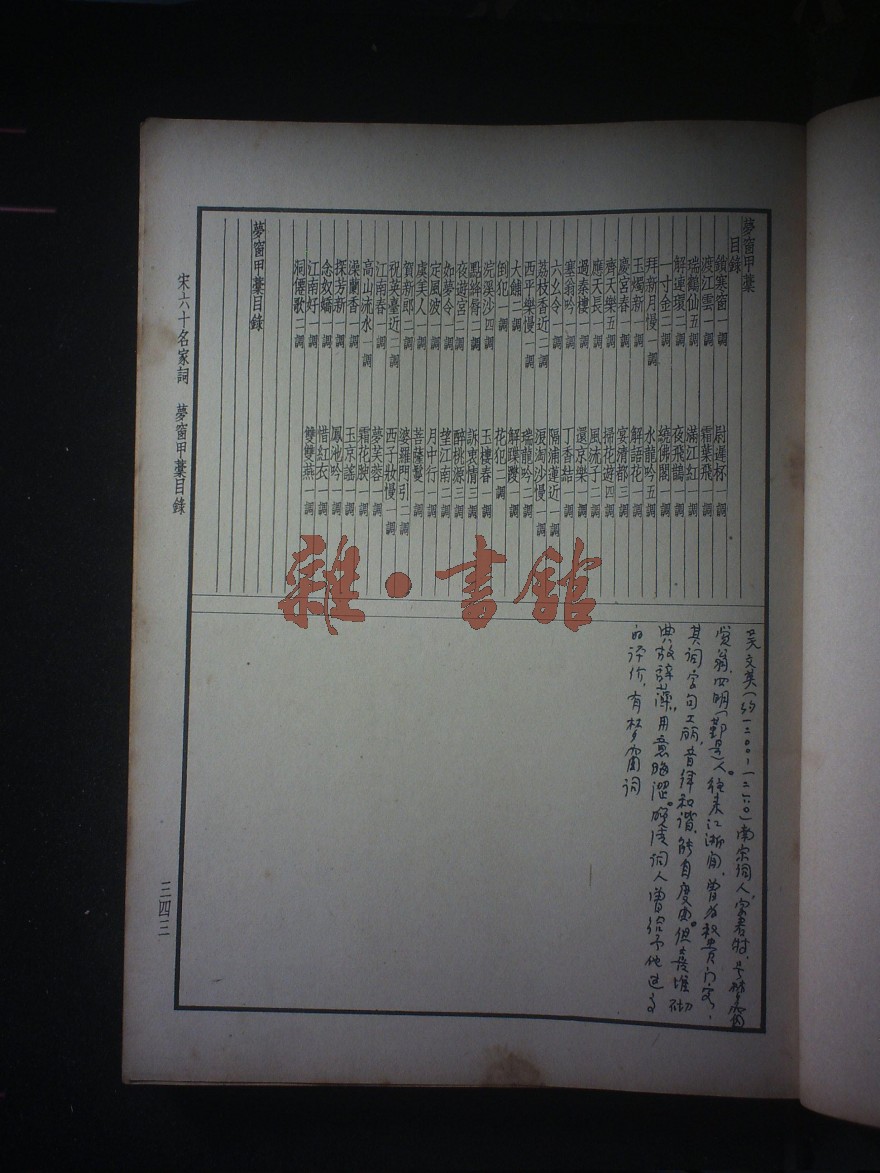 夢窗甲藁
目錄
鎖寒窗一調
尉遲杯一調
渡江雲一調
霜葉飛一調
瑞鶴仙五調
滿江紅二調
解連環二調
夜飛鵲一調
一寸金二調
繞佛閣二調
拜新月慢一調
水龍吟五調
玉燭新一調
解語花一調
慶宮春一調
宴清都三調
齊天樂五調
掃花遊四調
應天長一調
風流子二調
過秦樓一調
還京樂一調
塞翁吟一調
丁香結一調
六幺令一調
隔浦蓮近一調
荔枝香近二調
浪淘沙慢一調
西平樂慢一調
瑞龍吟二調
大酺二調
解蹀躞一調
倒犯一調
花犯二調
浣溪沙四調
玉樓春一調
點絳脣二調
訴衷情三調
夜遊宮二調
醉桃源三調
如夢令一調
望江南二調
定風波一調
月中行一調
虞美人一調
菩薩蠻一調
賀新郎二調
婆羅門引二調
祝英臺近二調
西子妝慢一調
江南春一調
夢芙蓉一調
高山流水一調
霜花腴一調
澡蘭香一調
玉京謠一調
探芳新一調
鳳池吟一調
念奴嬌一調
惜紅衣一調
江南好一調
雙雙燕一調
洞僊歌二調
夢窗甲藁目錄
宋六十名家詞　夢窗甲藁目錄
三四三
吴文英(约一二〇〇—一二六〇)南宗词人,字君特,号梦窗
觉翁,四明(鄞县)人。往来江浙间,曾为权贵门客,
其词字句工丽,音律和谐,能自度曲。但喜堆砌
典故辞藻,用意晦涩。晚清词人曾给予他过高
的评价,有梦窗词
雜·書館